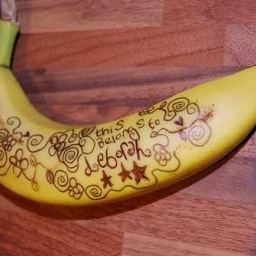 this
belongs to
deborah